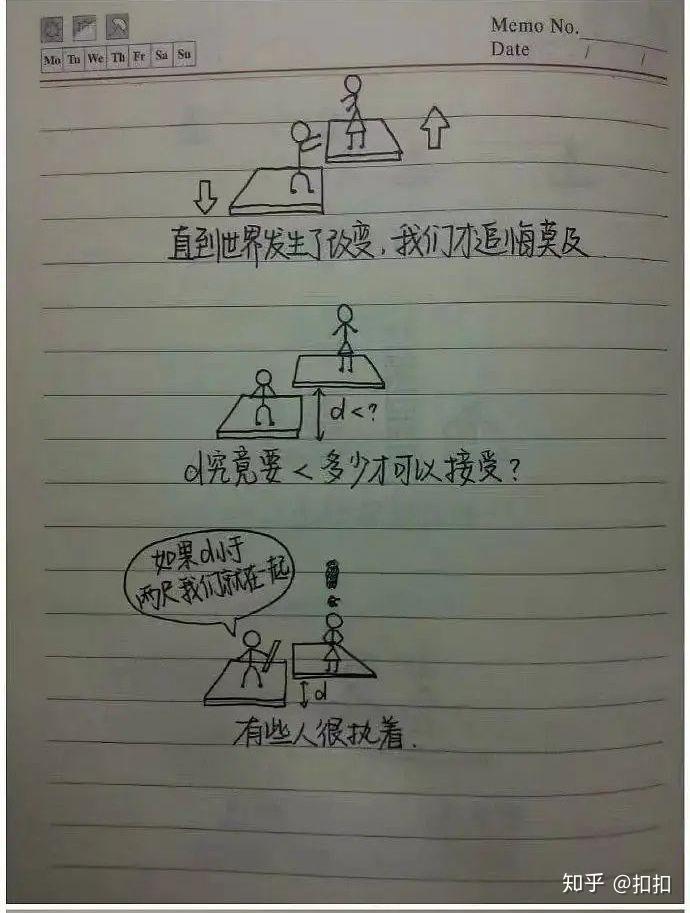 Memo No.
Date / /
Mo Tu We Th Fr Sa Su
直到世界发生了改变，我们才追悔莫及
d<?
d究竟要<多少才可以接受？
如果d小于
两尺我们就在一起
d
有些人很执着.
知乎 @扣扣